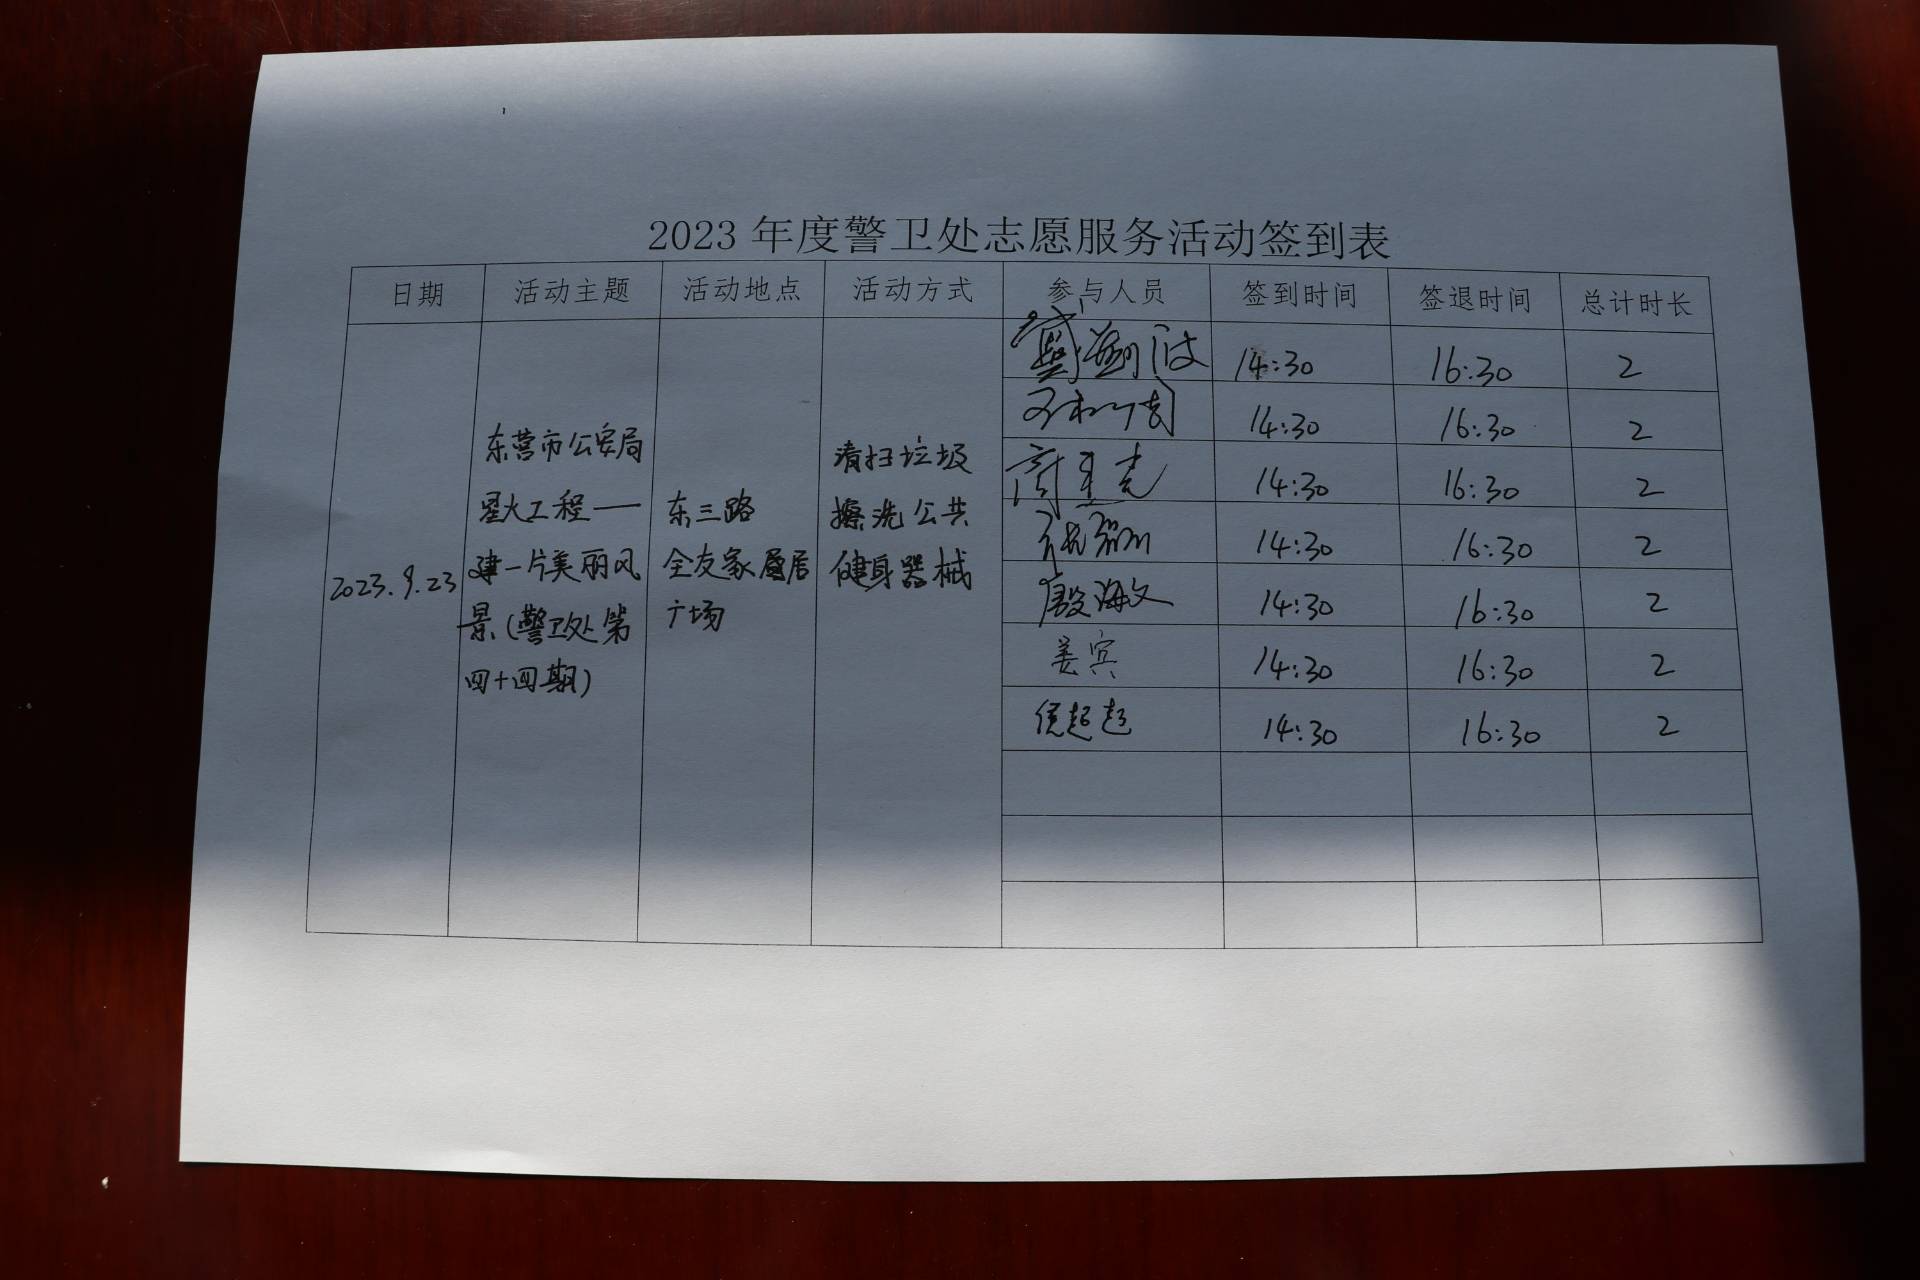 2023 年度警卫处志愿服务活动签到表
日期 活动主题 活动地点 活动方式 参与人员 签到时间 签退时间 总计时长
2023.9.23
东营市公安局
星火工程——
建一片美丽风
景(警卫处第
四十四期)
东三路
全友家居
广场
清扫垃圾
擦洗公共
健身器械
14:30 16:30 2
14:30 16:30 2
14:30 16:30 2
14:30 16:30 2
殷海文 14:30 16:30 2
姜宾 14:30 16:30 2
侯起起 14:30 16:30 2